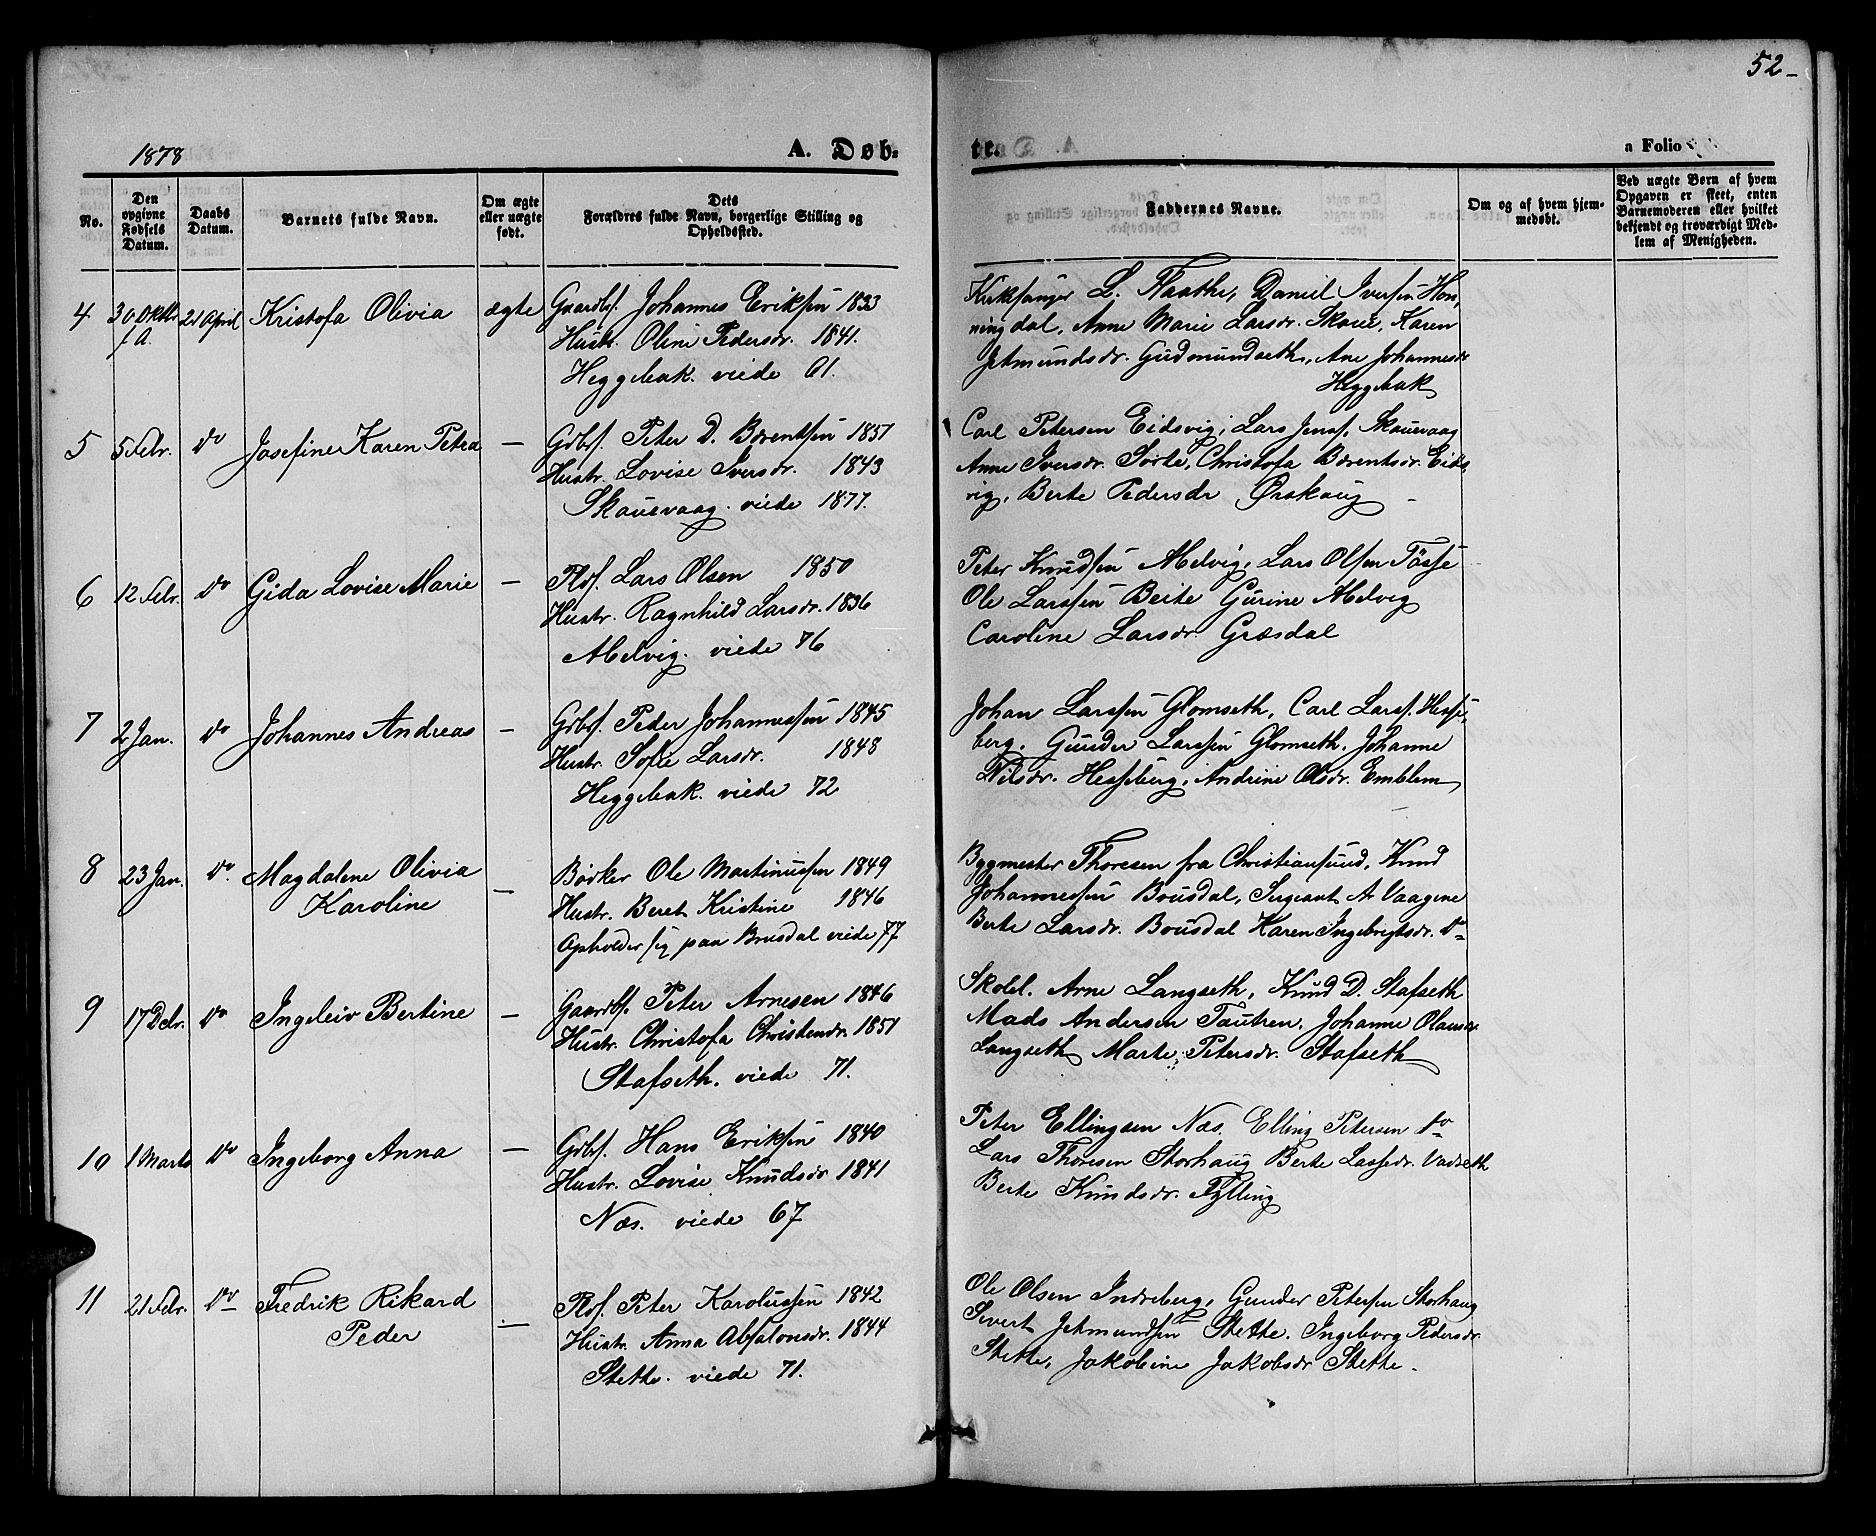 52-
1878
A. Døb-
te.
a Folio
No.
Den opgivne Fødsels Datum.
Daabs Datum.
Barnets fulde Navn.
Om ægte eller uægte født.
Dets Forældres fulde Navn, borgerlige Stilling og Opholdssted.
Faddernes Navne.
Om og af hvem hjemmedøbt.
Ved uægte Børn af hvem Opgaven er skeet, enten Barnemoderen eller hvilket bekjendt og troværdigt Medlem af Menigheden.
4 30 Oktbr f.A. 21 April Kristofa Olivia ægte
Gaardbr. Johannes Eriksen 1833
Hustr. Oline Pedersdr. 1841.
Heggebak. viede 61.
Kirksanger L. Flaathe, Daniel Iversen Hon-
ningdal, Anne Marie Larsdr. Skoue, Karen
Jetmundsdr. Gudmundseth, Ane Johannesdr
Heggebak
5 5 Febr. do Josefine Karen Petra —
Gdbr. Peter D. Bærentsen 1851
Hustr. Lovise Iversdr. 1843
Skouevaag. viede 1877.
Carl Petersen Eidsvig, Lars Jens. Skouevaag
Anne Iversdr. Sorte, Christofa Bærentsdr. Eids-
vig, Berte Pedersdr Ørskoug
6 12 Febr. do Gida Lovise Marie —
Plds. Lars Olsen 1850
Hustr. Ragnhild Larsdr. 1836
Melvig. viede 76
Peter Knudsen Melvig, Lars Olsen Tösse
Ole Larssen Berte Gurine Melvig
Caroline Larsdr. Græsdal
7 2 Jan. do Johannes Andreas —
Gdbr. Peder Johannessen 1845
Hustr. Sofie Larsdr. 1848
Heggebak. viede 72
Johan Larssen Glomseth, Carl Larss. Hesse-
berg, Gunder Larssen Glomseth, Johanne
Nilsdr. Hesseberg, Andrine Olsdr. Emblem
8 23 Jan. do. Magdalene Olivia
Karoline —
Bødker Ole Martinussen 1849
Hustr. Beret Kristine 1846
Opholder sig paa Brusdal viede 77
Bygmester Thoresen fra Christiansund, Knud
Johannessen Brusdal, Sergeant A. Vaagene
Berte Larsdr. Brusdal Karen Ingebrigtsdr. do
9 17 Debr. do Ingeleiv Bertine —
Gaardbr. Peter Arnesen 1846
Hustr. Christofa Christendr. 1851
Stafseth. viede 71.
Skolel. Arne Langseth, Knud D. Stafseth
Mads Andersen Tautren, Johanne Olausdr.
Langseth Marte Petersdr. Stafseth
10 1 Marts do Ingeborg Anna —
Gdbr. Hans Eriksen 1840
Hustr. Lovise Knudsdr 1841
Næs. viede 67
Peter Ellingsen Næs, Elling Petersen do
Lars Thoresen Storhaug Berte Lassedr. Vadseth
Berte Knudsdr. Fylling
11 21 Febr. do Fredrik Rikard
Peder —
Plds. Peter Karolussen 1842
Hustr. Anna Absalonsdr. 1844
Stette. viede 71.
Ole Olsen Indreberg, Gunder Petersen Storhaug
Sivert Jetmundsen Stette. Ingeborg Pedersdr.
Stette, Jakobine Jakobsdr Stette.